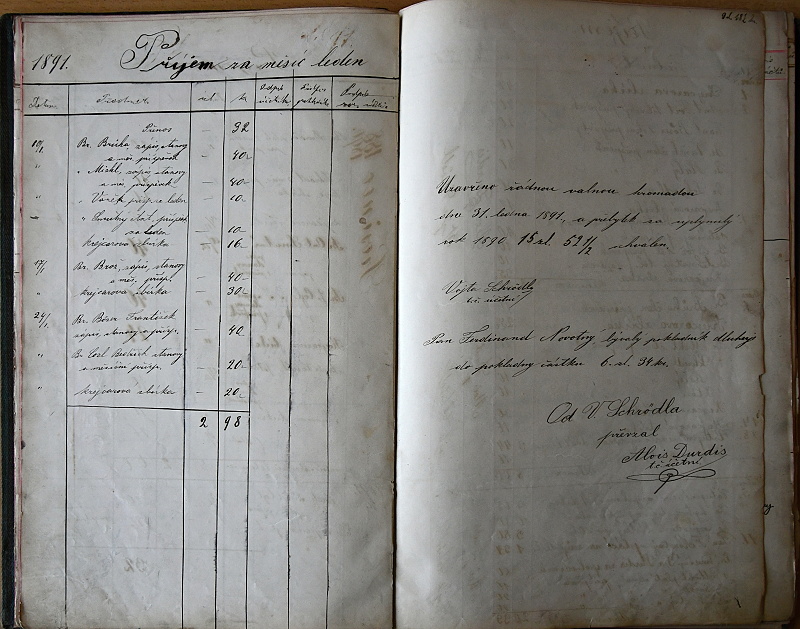 1891. Příjem za měsíc leden
Datum Předmět zl. kr. Podpis účetník Podpis pokladník Podpis
Přenos — 32
10/1 Br. Bučka zápis, stanovy
a měs. příspěvek — 40
" " Michl, zápis, stanovy
a měs. příspěvek — 40
" " Voříšek přísp. za leden — 10
" příspěv.
za leden — 10
krejcarová sbírka — 16
17/1 Br. Brož, zápis, stanovy
a měs. přísp. — 40
" krejcarová sbírka — 30
24/1 Br. František
zápis, stanovy a přísp. — 40
" Br. Bedřich stanovy
a měsíční přísp. — 20
" krejcarová sbírka — 20
2 98
Uzavřeno řádnou valnou hromadou
dne 31. ledna 1891, a přebytek za uplynulý
rok 1890 15 zl. 52 1/2 schválen.
Vojta Schrödl
t.č. účetní
Pan Ferdinand Novotný bývalý pokladník dluhuje
do pokladny částku 6. zl. 34 kr.
Od V. Schrödla
převzal
Alois Durdis
t.č. účetní